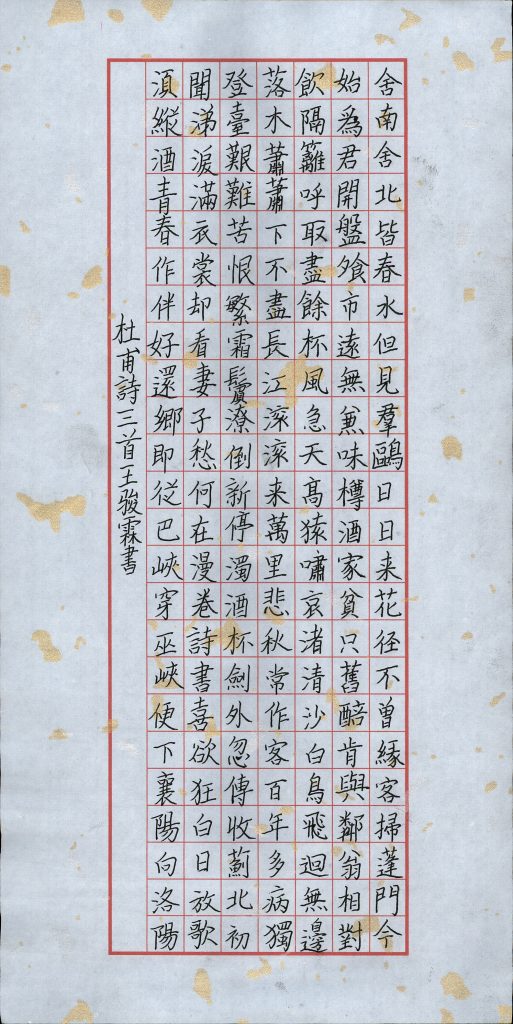 舍南舍北皆春水但見羣鷗日日来花径不曾縁客掃蓬門今
始為君開盤飧市遠無兼味樽酒家貧只舊醅肯與鄰翁相對
飲隔籬呼取盡餘杯風急天髙猿嘯哀渚清沙白鳥飛迴無邊
落木蕭蕭下不盡長江滚滚来萬里悲秋常作客百年多病獨
登臺艱難苦恨繁霜鬢潦倒新停濁酒杯劍外忽傳收薊北初
聞涕淚滿衣裳却看妻子愁何在漫卷詩書喜欲狂白日放歌
須縱酒青春作伴好還鄉即從巴峽穿巫峽便下襄陽向洛陽
杜甫詩三首王骏霖書